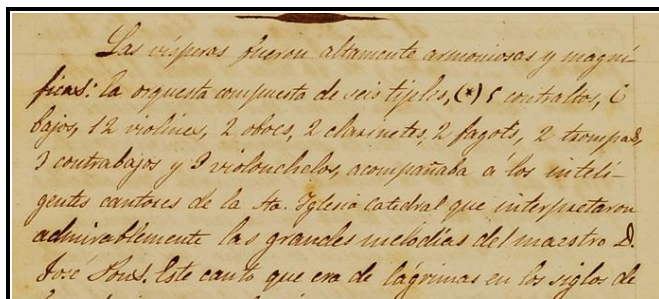 Las vísperas fueron altamente armoniosas y magní-
ficas: la orquesta compuesta de seis tiples, (*) 5 contraltos, 6
bajos, 12 violines, 2 oboes, 2 clarinetes, 2 fagots, 2 trompas,
3 contrabajos y 3 violonchelos, acompañaba á los inteli-
gentes cantores de la Sta. Iglesia Catedral que interpretaron
admirablemente las grandes melodías del maestro D.
José Pons. Este canto que era de lágrimas en los siglos de